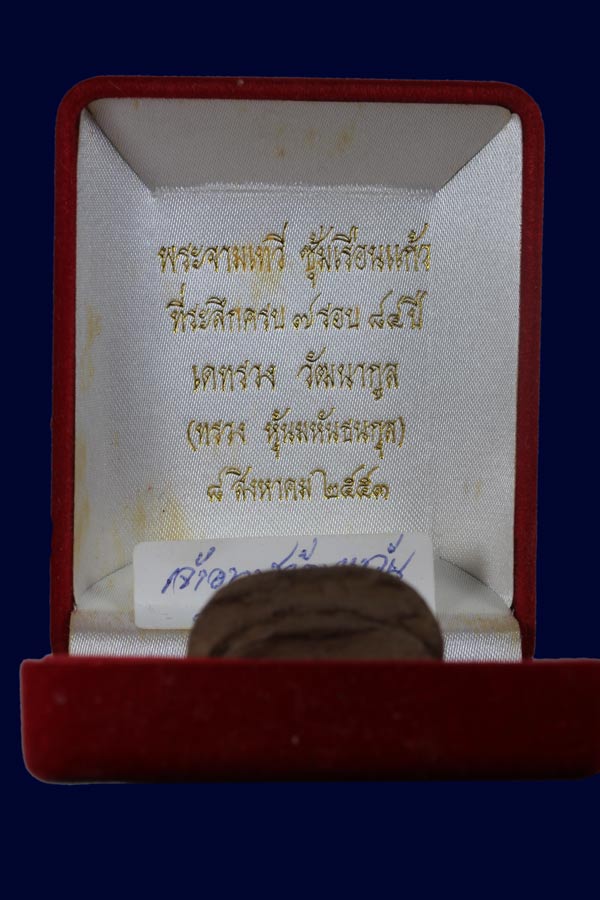 พระจามเทวี ซุ้มเรือนแก้ว
ที่ระลึกครบ ๗ รอบ ๘๔ ปี
เดทรวง วัฒนากูล
(ทรวง หุ้นมหันธนกุล)
๘ สิงหาคม ๒๕๕๓